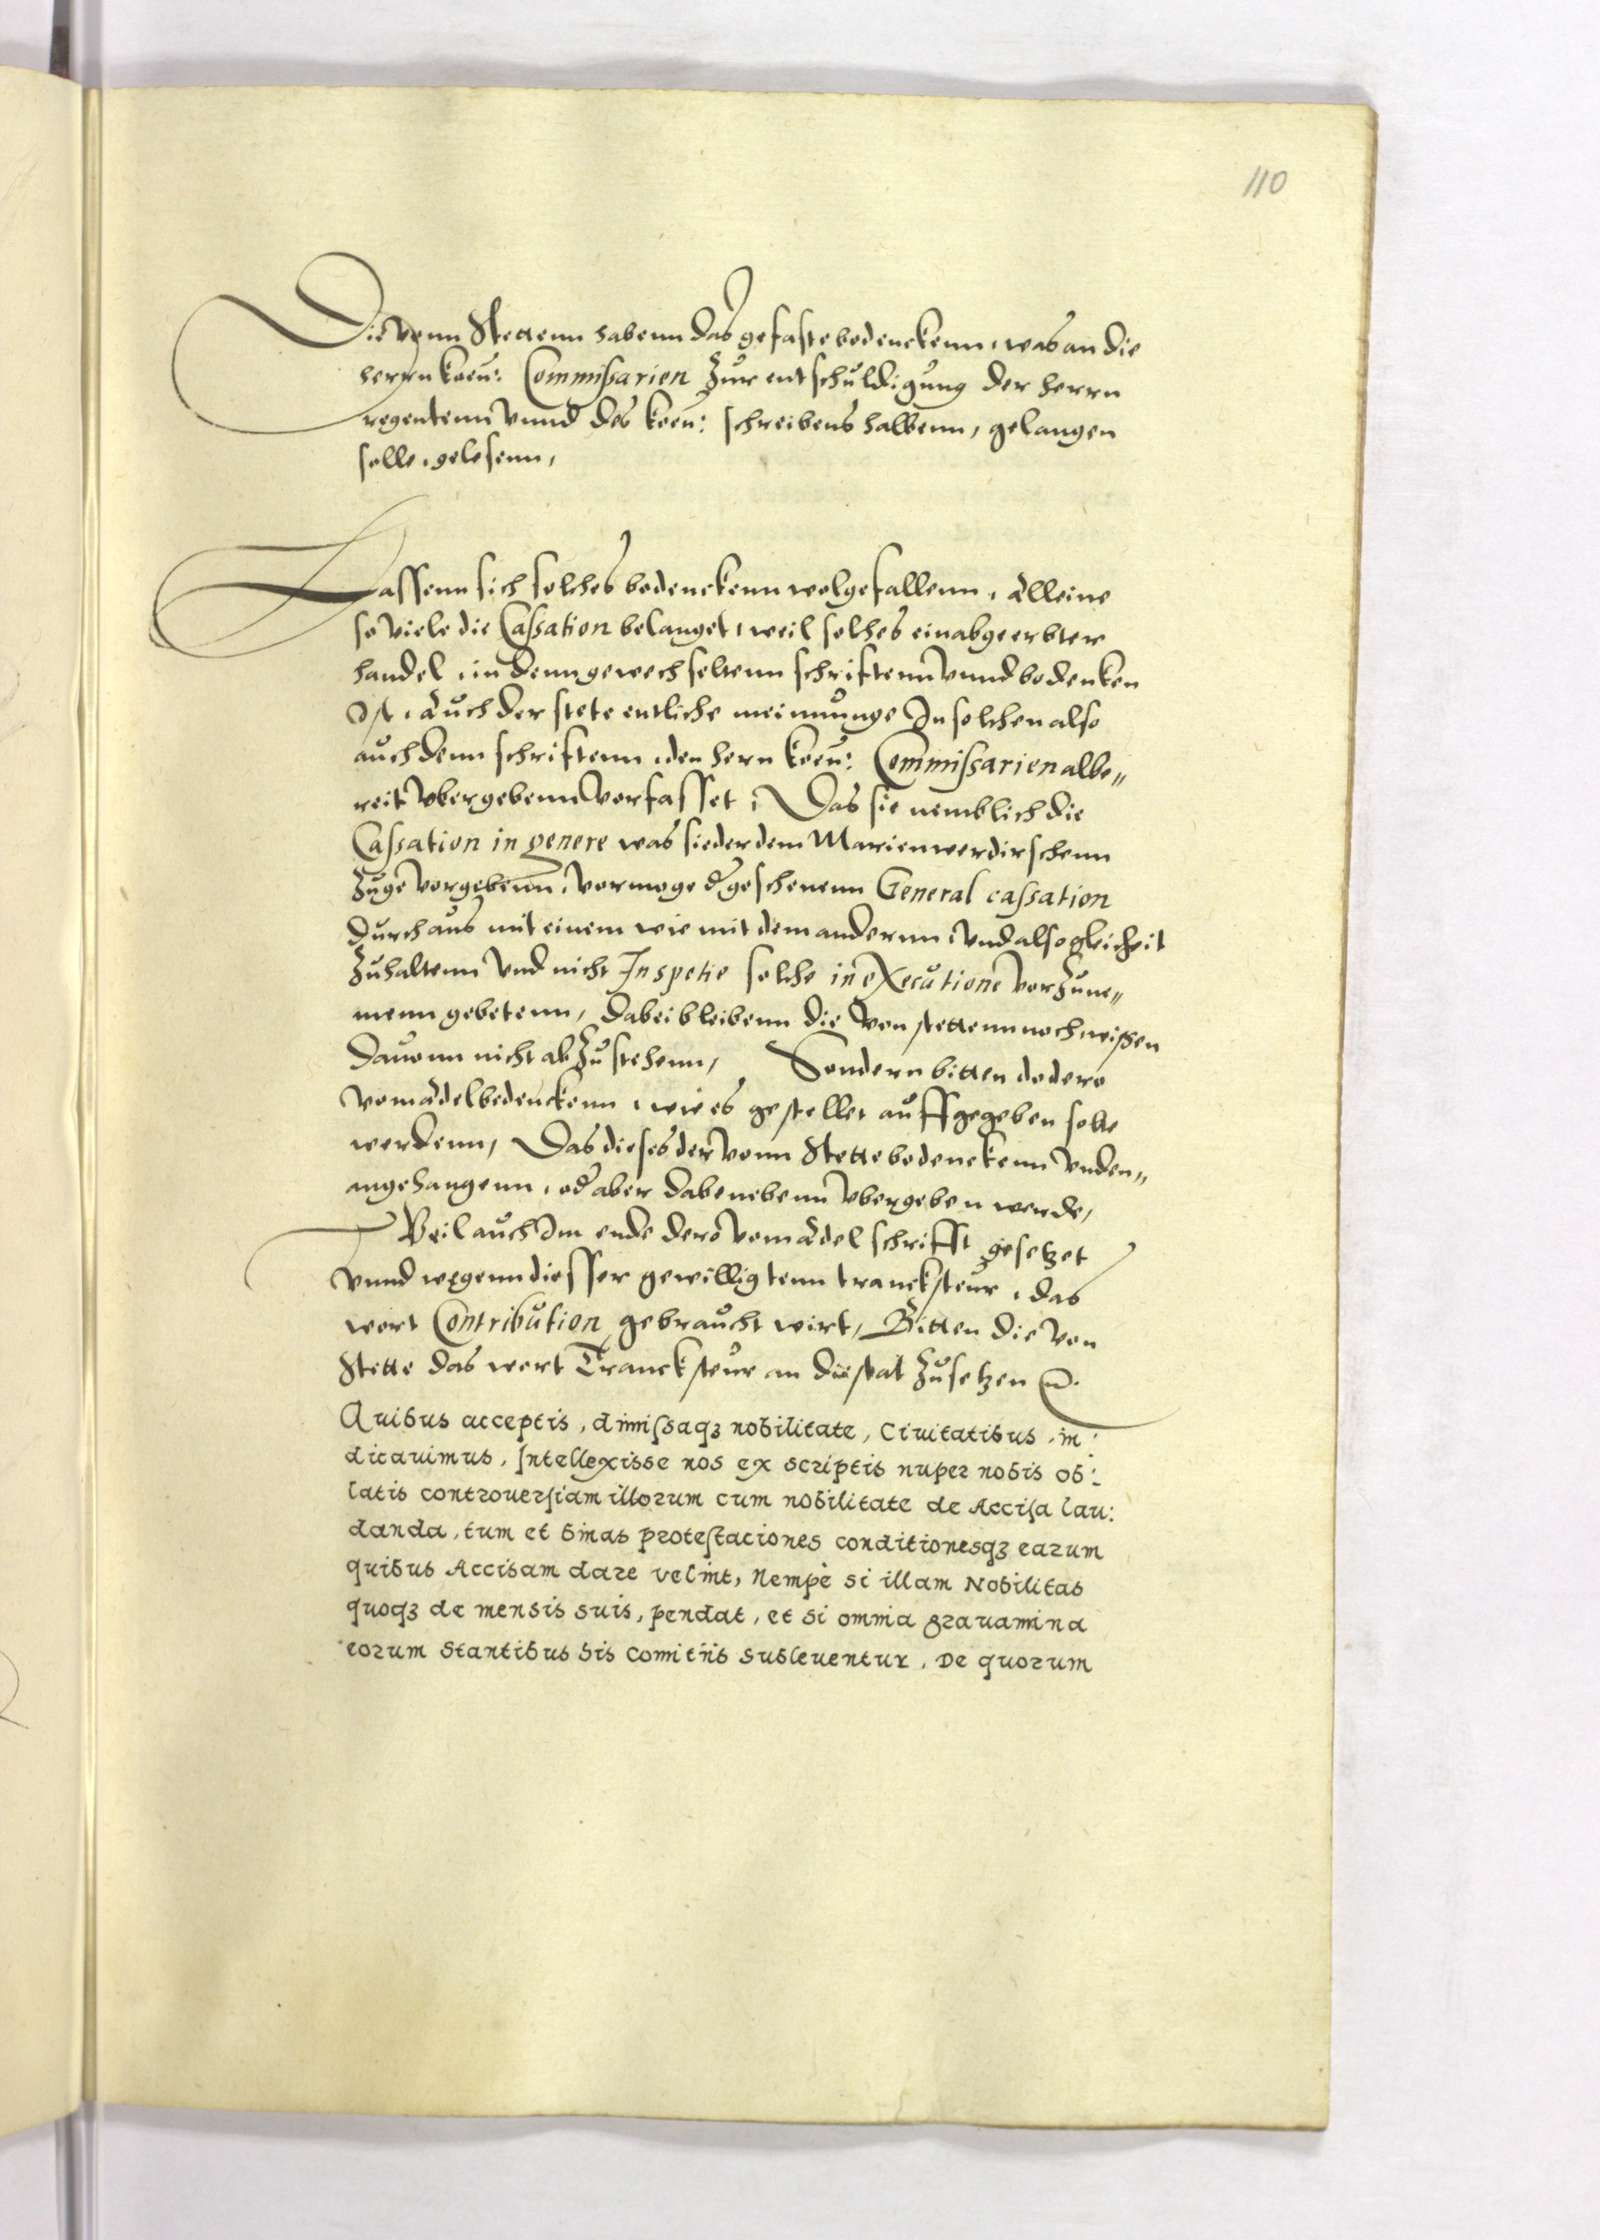 110
Die vonn Stettenn habenn das gefaste bedenckenn, was an die
herrn koen: Commissarien Zur entschuldigung der herrn
regentenn vnnd des koen: schreibens halbenn, gelangen
solle, gelesenn,
Lassenn sich solches bedenckenn wolgefallenn, Alleine
so viele die Cassation belanget, weil solches ein abgeerbter
handel, in denn gewechseltenn schrifftenn vnnd bedenken
Ist, Auch der stete entliche meinunge In solchen also
auch denn schrifftenn, den hern koen: Commissarien albe„
reit vbergebenn vorfasset, Das sie nemblich die
Cassation in genere was sieder dem Marienwerdirschenn
Zuge vorgebenn, vormoge d geschenenn General cassation
Durchaus mit einem wie mit dem andernn, vnd also gleicheit
Zuhaltenn vnd nicht In spetie solche in eXecutione vorZune„
menn gebetenn, dabei bleibenn die von stettenn noch, wissen
Dauonn nicht abZustehenn, Sondern bitten do dero
vom Adel bedenckenn, wie es gestellet auffgegeben solte
werdenn, Das dieses der vonn Stette bedenckenn vnden„
angehangenn, od aber dabenebenn vbergeben werde,
Weil auch Im ende dero vom Adel schrifft gesetzet
vnnd wegenn diesser gewilligtenn trancksteur, das
wort Contribution gebraucht wirt, Bitten die von
Stette das wort Trancksteur an die stat Zusetzen
Quibus acceptis, dimissaqз nobilitate, Ciuitatibus, in:
dicauimus, Intellexisse nos ex scriptis nuper nobis ob:
latis controuersiam illorum cum nobilitate de Accisa lau:
danda, tum et binas protestaciones conditionesqз earum
quibus Accisam dare velint, Nempè si illam Nobilitas
quoqз de mensis suis, pendat, et si omnia grauamina
eorum Stantibus his Comitiis subleuentur, De quorum